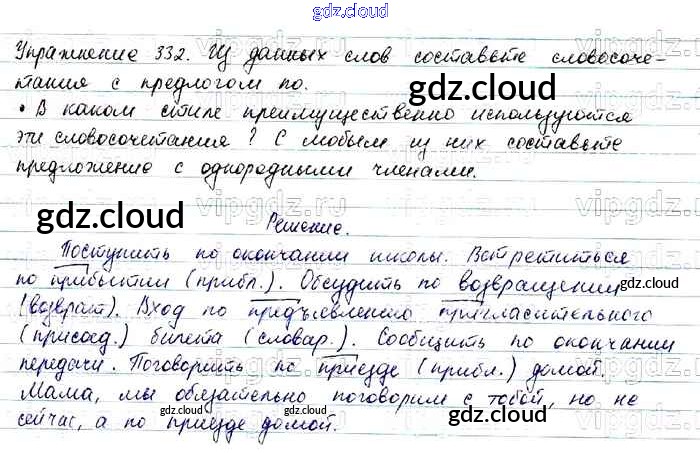 gdz.cloud
Упражнение 332. Из данных слов составьте словосоче-
тания с предлогом по.
gdz.cloud
• В каком стиле преимущественно используются
эти словосочетания? С любым из них составьте
предложение с однородными членами.
gdz.cloud
Решение.
Поступить по окончании школы. Встретиться
по прибытии (прибл.). Обсудить по возвращении
gdz.cloud
(возврат). Вход по предъявлению пригласительного
(присоед.) билета (словар.). Сообщить по окончании
передачи. Поговорить по приезде (прибл.) домой.
Мама, мы обязательно поговорим с тобой, но не
gdz.cloud gdz.cloud gdz.cloud
сейчас, а по приезде домой.